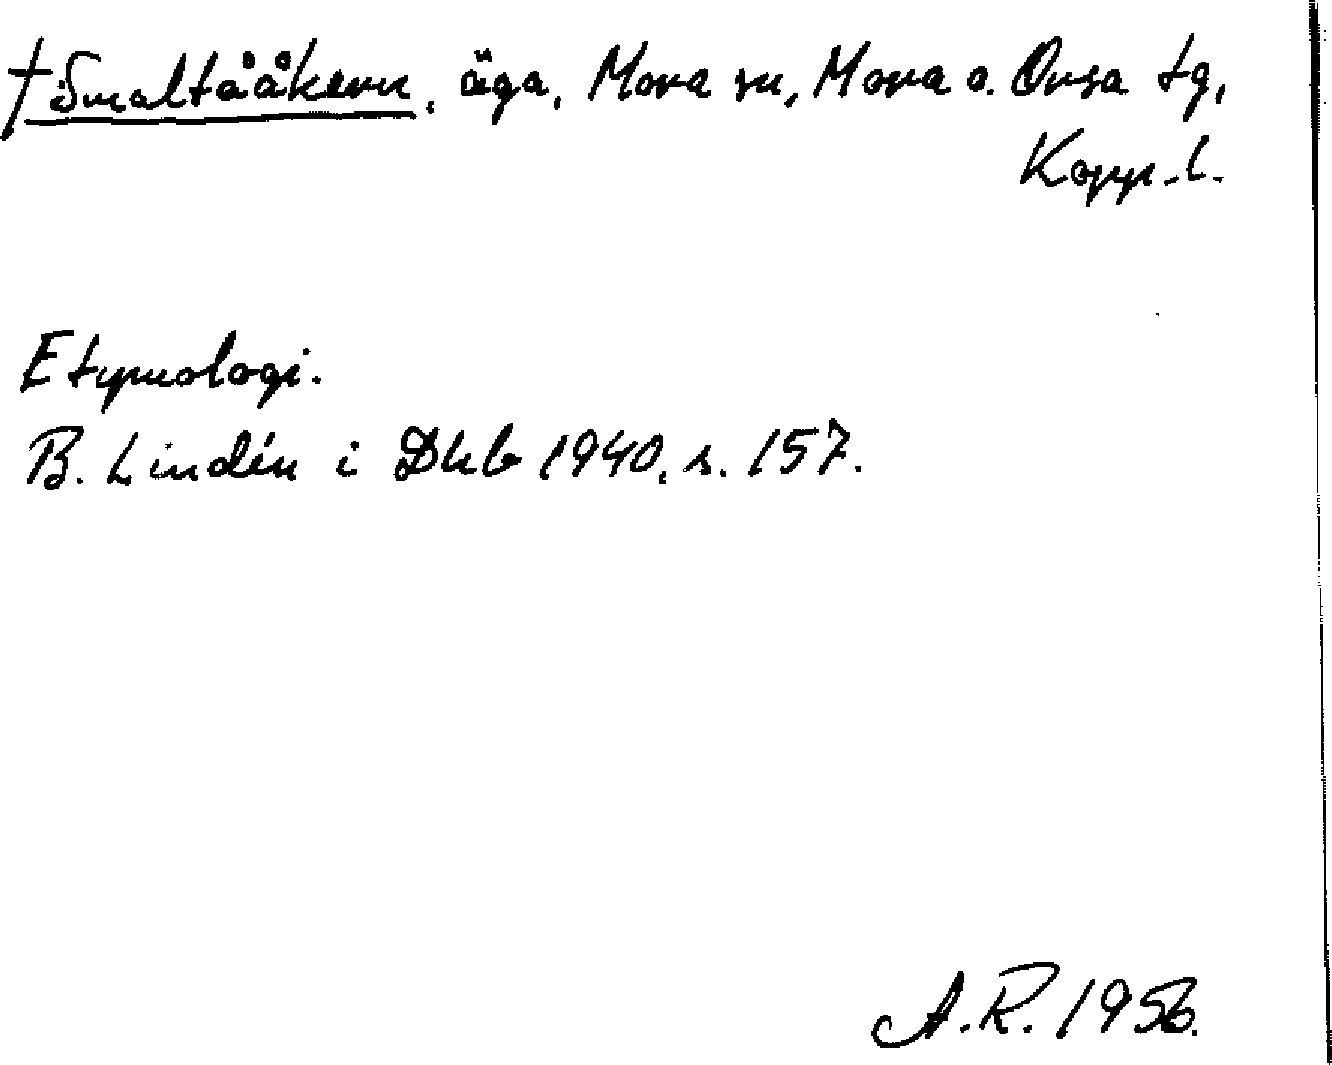 †Smaltååkern, äga, Mora sn, Mora o. Orsa tg,
Kopp. l.
Etymologi.
B. Lindén i Dhb 1940, s. 157.
A.R. 1956.